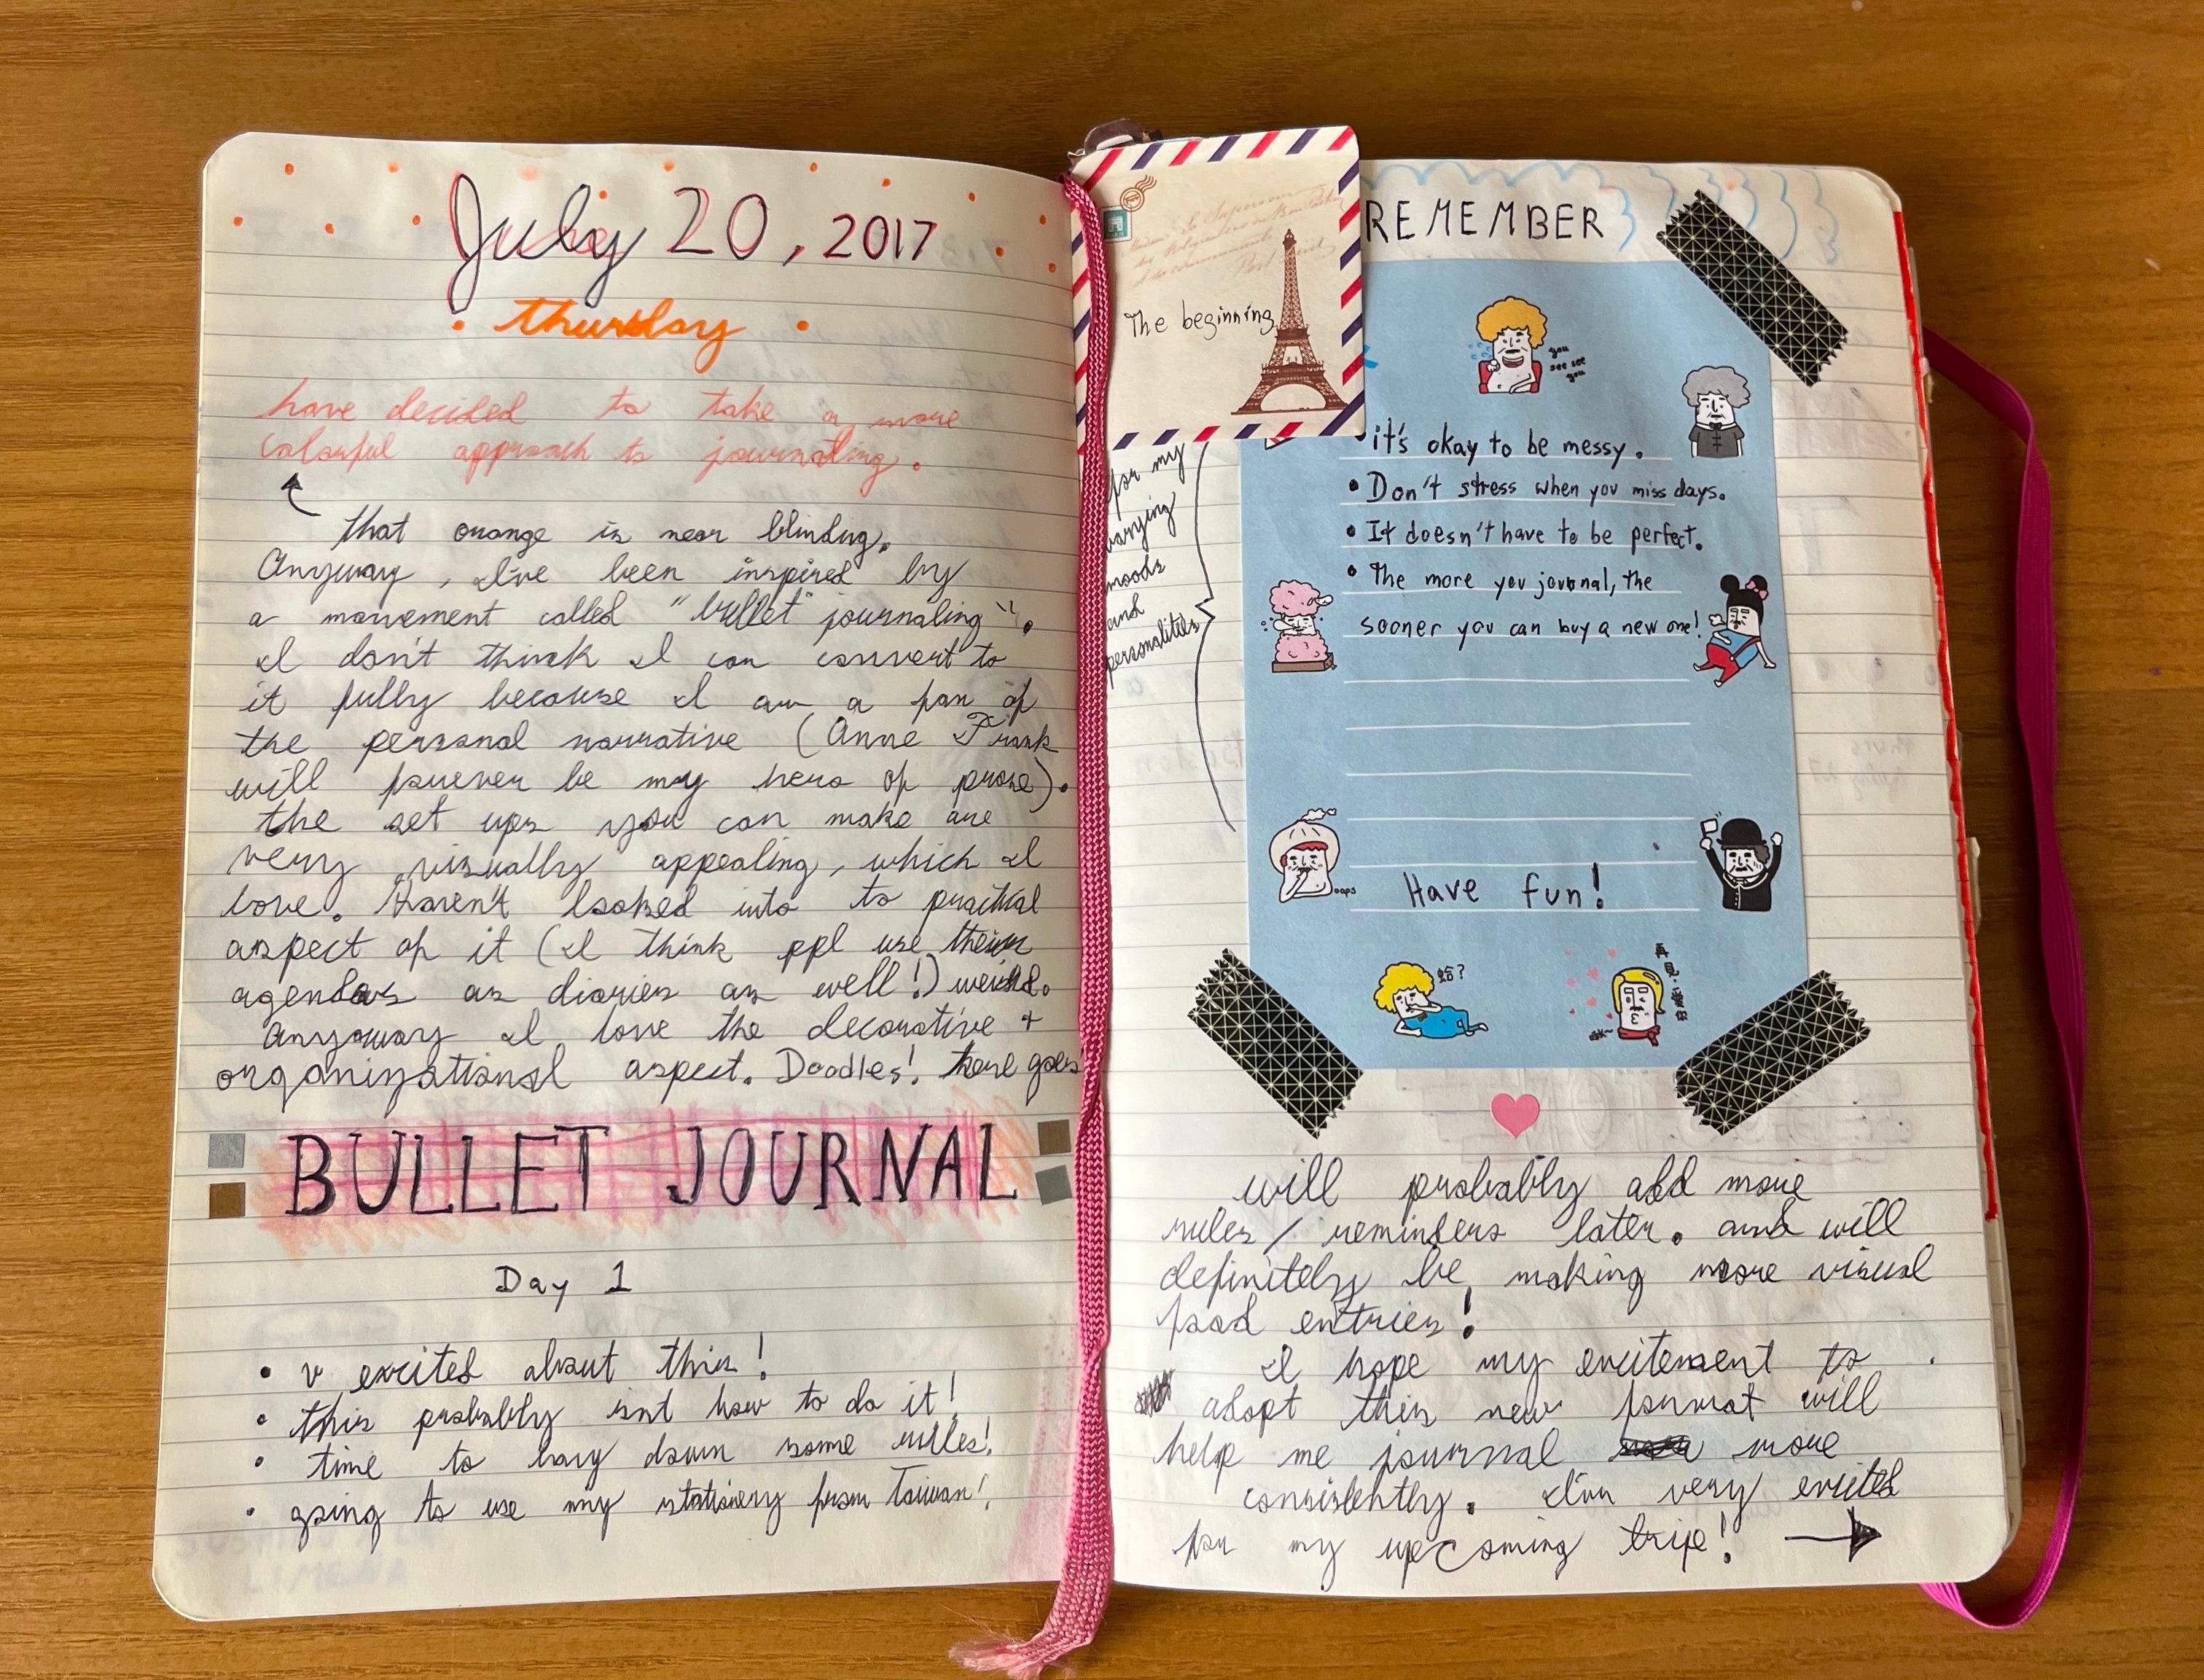 July 20, 2017
thursday
have decided to take a more
colorful approach to journaling.
that orange is near blinding.
Anyway, I've been inspired by
a movement called "bullet journaling".
I don't think I can convert to
it fully because I am a fan of
the personal narrative (Anne Frank
will forever be my hero of prose).
the set ups you can make are
very visually appealing, which I
love. Haven't looked into to practical
aspect of it (I think ppl use their
agendas as diaries as well!) weird.
Anyway I love the decorative +
organizational aspect. Doodles! here goes
BULLET JOURNAL
Day 1
• v excited about this!
• this probably isnt how to do it!
• time to lay down some rules!
• going to use my stationery from Taiwan!
The beginning
for my
varying
moods
and
personalities
REMEMBER
you
see see
you
• it's okay to be messy.
• Don't stress when you miss days.
• It doesn't have to be perfect.
• The more you journal, the
sooner you can buy a new one!
oops
Have fun!
蛤?
再見
will probably add more
rules/reminders later. and will
definitely be making more visual
food entries!
I hope my excitement to
adopt this new format will
help me journal more
consistently. I'm very excited
for my upcoming trip!